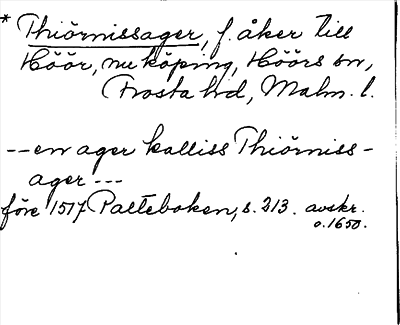 * Thiörnissager, f. åker till
Höör, nu köping, Höörs sn,
Frosta hd, Malm. l.
-- en ager kalliss Thiörniss-
ager ---
före 1517 Palteboken, s. 213. avskr.
o. 1650.